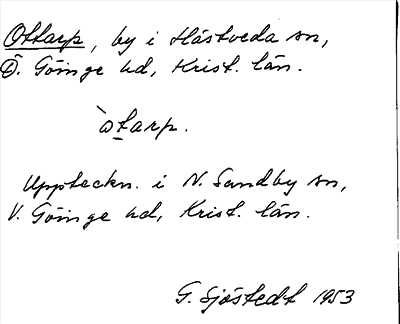 Ottarp, by i Hästveda sn,
Ö. Göinge hd, Krist. län.
`otarp.
Uppteckn. i N. Sandby sn,
V. Göinge hd, Krist. län.
G. Sjöstedt 1953